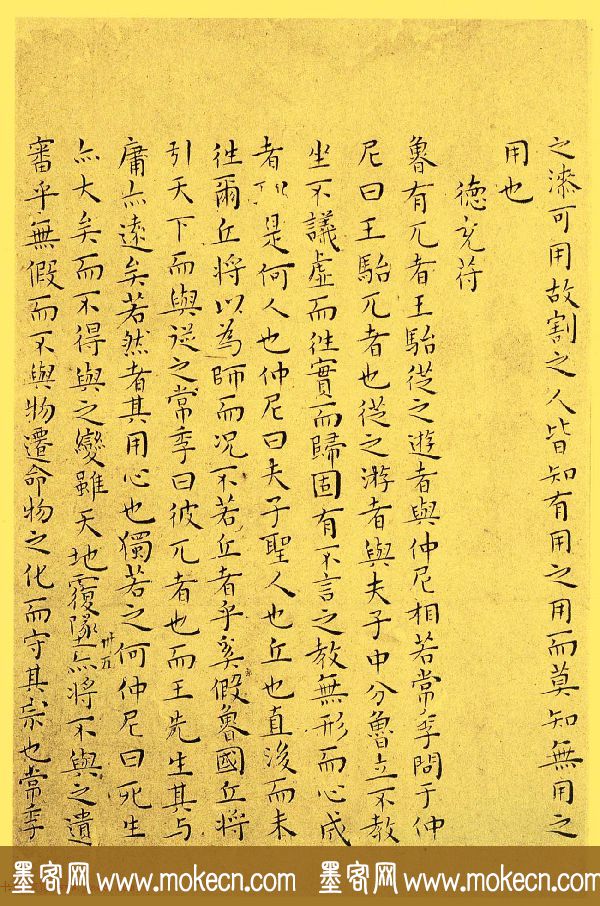 之漆可用故割之人皆知有用之用而莫知無用之
用也
德充符
魯有兀者王駘從之遊者與仲尼相若常季問于仲
尼曰王駘兀者也從之游者與夫子中分魯立不教
坐不議虛而往實而歸固有不言之教無形而心成
者 是何人也仲尼曰夫子聖人也丘也直後而未
往爾丘將以為師而況不若丘者乎奚假魯國丘將
引天下而與從之常季曰彼兀者也而王先生其与
庸亦遠矣若然者其用心也獨若之何仲尼曰死生
亦大矣而不得與之變雖天地覆墜亦將不與之遺
卅五
審乎無假而不與物遷命物之化而守其宗也常季
墨客网 www.mokecn.com 墨客网 www.mokecn.com